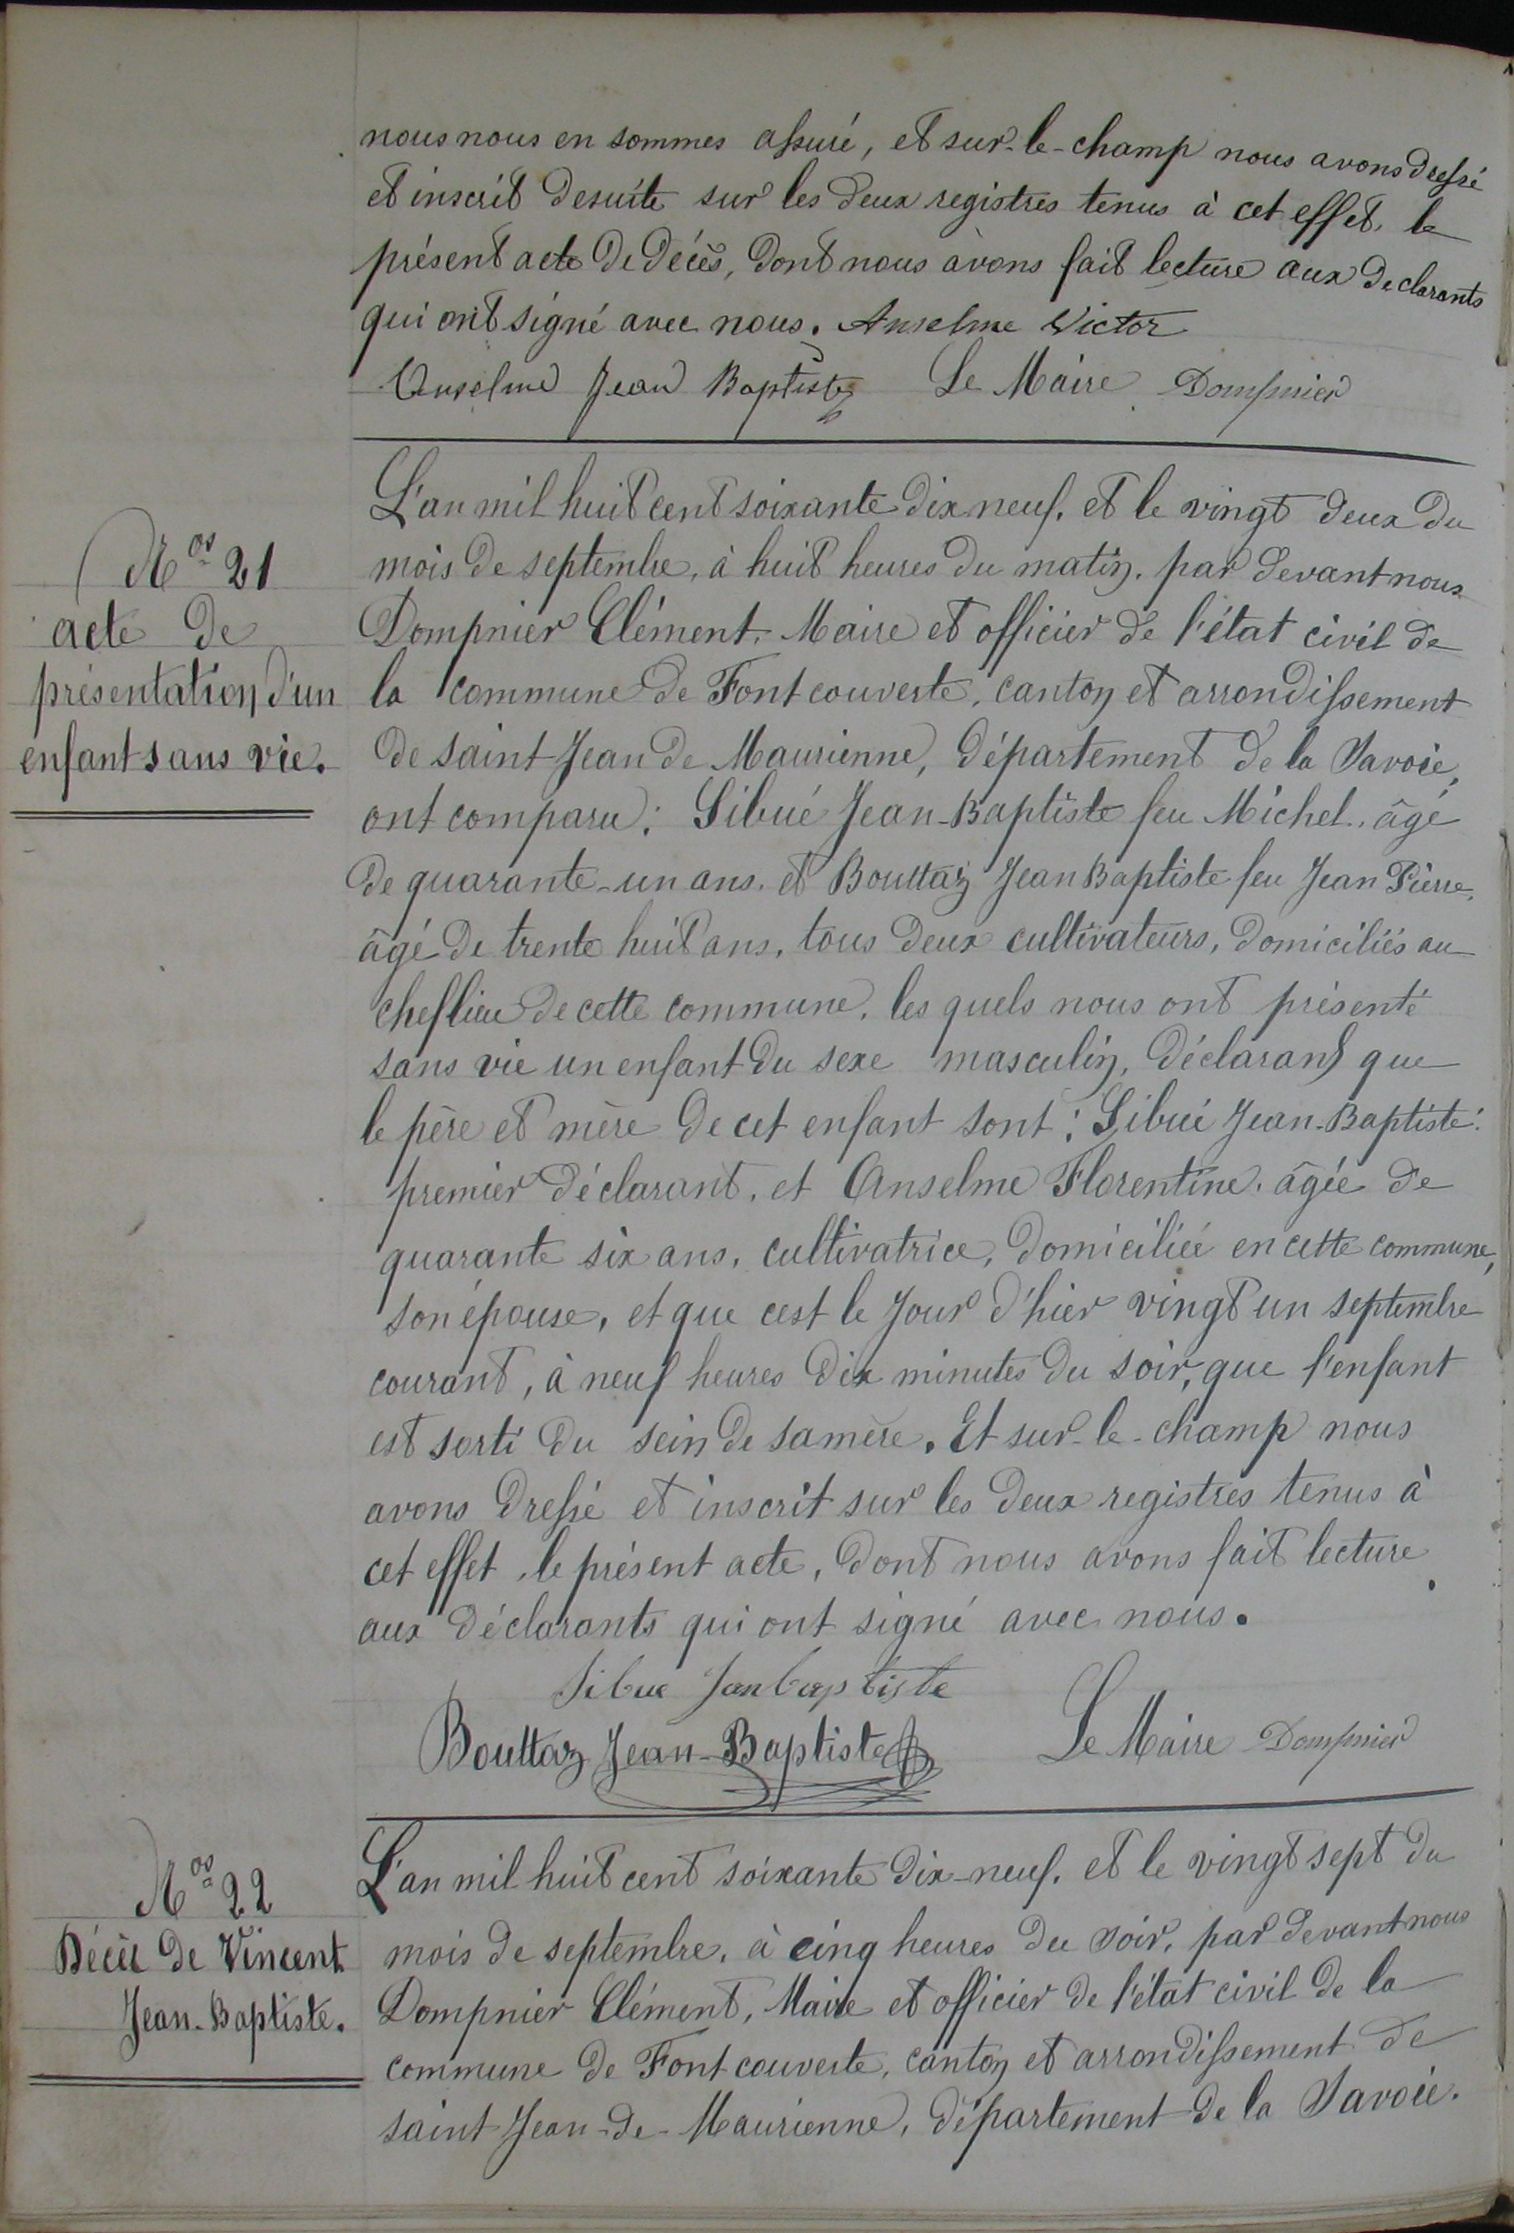 nous nous en sommes assuré, et sur-le-champ nous avons dressé
et inscrit desuite sur les deux registres tenus à cet effet, le
présent acte de décès, dont nous avons fait lecture aux declarants
qui ont signé avec nous. Anselme Victor
Anselme Jean Baptiste Le Maire Dompnier
Nos 21
acte de
présentation d'un
enfant sans vie.
L'an mil huit cent soixante dix neuf, et le vingt deux du
mois de septembre, à huit heures du matin, par devant nous
Dompnier Clément, Maire et officier de l'état civil de
la commune de Fontcouverte, canton et arrondissement
de saint Jean de Maurienne, département de la Savoie,
ont comparu: Sibué Jean-Baptiste feu Michel, âgé
de quarante-un ans, et Bouttaz Jean Baptiste feu Jean Pierre,
âgé de trente huit ans, tous deux cultivateurs, domiciliés au
cheflieu de cette commune, les quels nous ont présenté
sans vie un enfant du sexe masculin, déclarant que
le père et mère de cet enfant sont: Sibué Jean-Baptiste
premier déclarant, et Anselme Florentine, âgée de
quarante six ans, cultivatrice, domiciliée en cette commune,
son épouse, et que cest le jour d'hier vingt un septembre
courant, à neuf heures dix minutes du soir, que l'enfant
est sorti du sein de sa mère. Et sur-le-champ nous
avons dressé et inscrit sur les deux registres tenus à
cet effet, le présent acte, dont nous avons fait lecture
aux déclarants qui ont signé avec nous.
Sibue Jan baptiste
Bouttaz Jean-Baptiste Le Maire Dompnier
Nos 22
Décès de Vincent
Jean-Baptiste.
L'an mil huit cent soixante dix-neuf, et le vingt sept du
mois de septembre, à cinq heures du soir, par devant nous
Dompnier Clément, Maire et officier de l'état civil de la
commune de Fontcouverte, canton et arrondissement de
saint Jean-de-Maurienne, département de la Savoie.